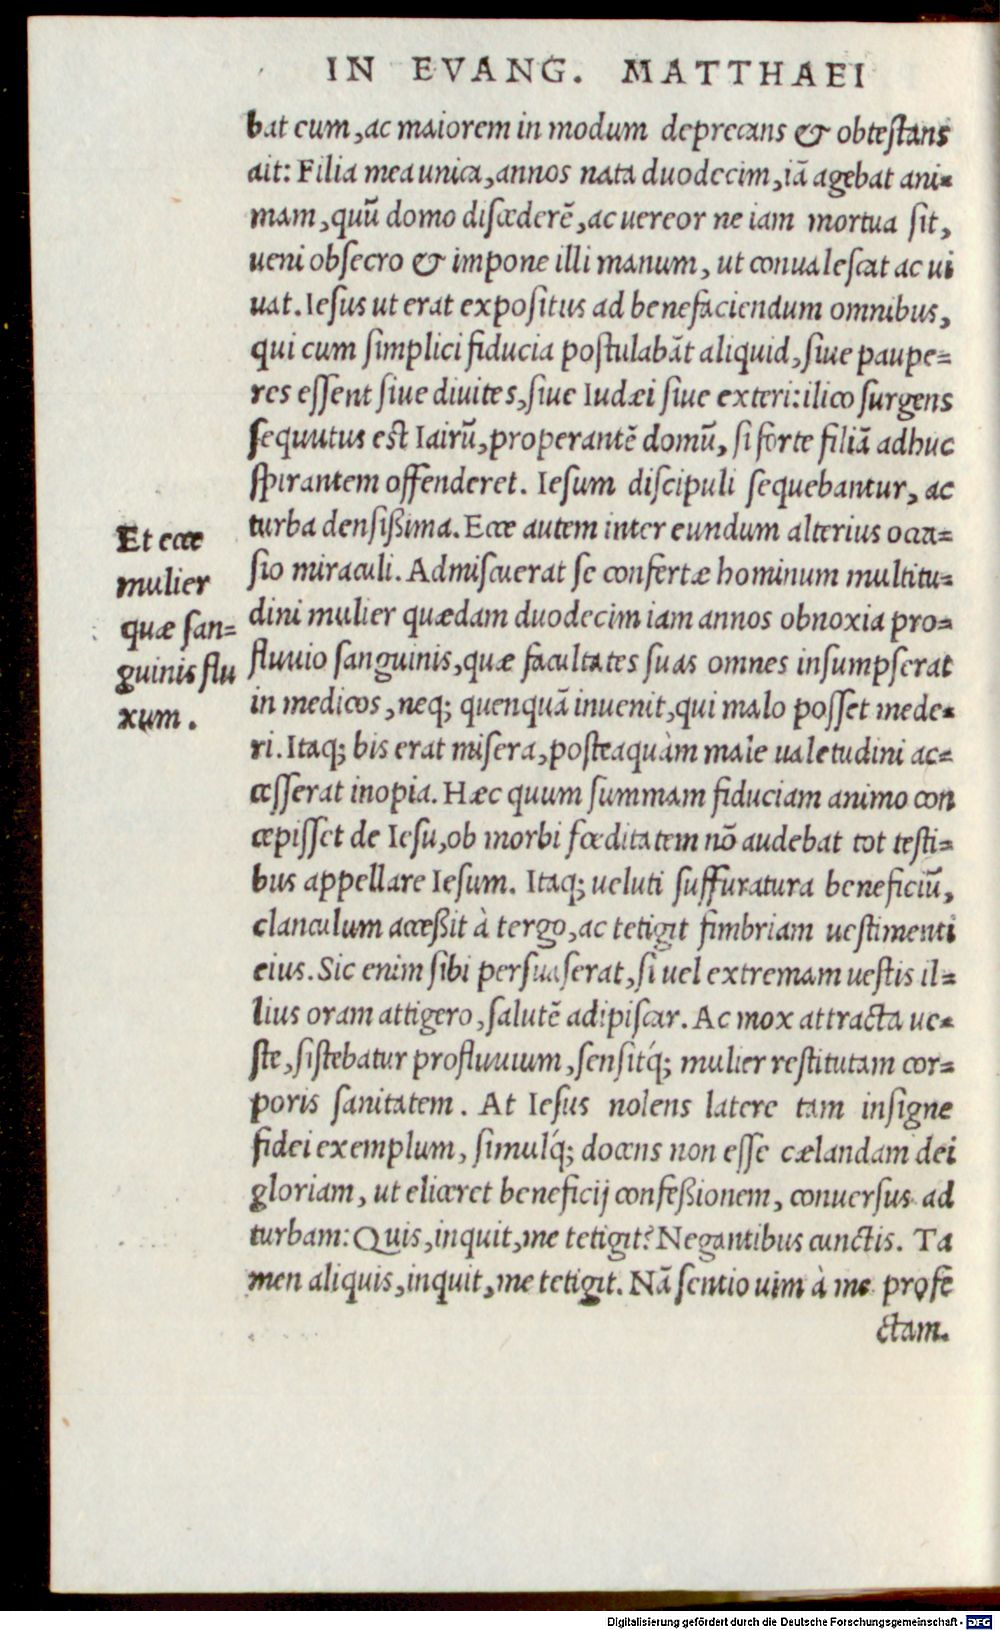 IN EVANG. MATTHAEI
bat eum, ac maiorem in modum deprecans & obtestans
ait: Filia mea unica, annos nata duodecim, iā agebat ani-
mam, quū domo discederē, ac uereor ne iam mortua sit,
ueni obsecro & impone illi manum, ut conualescat ac ui
uat. Iesus ut erat expositus ad benefaciendum omnibus,
qui cum simplici fiducia postulabāt aliquid, siue paupe-
res essent siue diuites, siue Iudæi siue exteri: ilico surgens
sequutus est Iairū, properantē domū, si forte filiā adhuc
spirantem offenderet. Iesum discipuli sequebantur, ac
turba densißima. Ecce autem inter eundum alterius occa-
sio miraculi. Admiscuerat se confertæ hominum multitu-
dini mulier quædam duodecim iam annos obnoxia pro-
fluuio sanguinis, quæ facultates suas omnes insumpserat
in medicos, neq; quenquā inuenit, qui malo posset mede-
ri. Itaq; bis erat misera, posteaquàm male ualetudini ac-
cesserat inopia. Hæc quum summam fiduciam animo con
cepisset de Iesu, ob morbi fœditatem nō audebat tot testi-
bus appellare Iesum. Itaq; ueluti suffuratura beneficiū,
clanculum acceßit à tergo, ac tetigit fimbriam uestimenti
eius. Sic enim sibi persuaserat, si uel extremam uestis il-
lius oram attigero, salutē adipiscar. Ac mox attracta ue-
ste, sistebatur profluuium, sensitq́; mulier restitutam cor-
poris sanitatem. At Iesus nolens latere tam insigne
fidei exemplum, simulq́; docens non esse cælandam dei
gloriam, ut eliceret beneficij confeßionem, conuersus ad
turbam: Quis, inquit, me tetigit? Negantibus cunctis. Ta
men aliquis, inquit, me tetigit. Nā sentio uim à me profe
ctam.
Et ecce
mulier
quæ san-
guinis flu
xum.
Digitalisierung gefördert durch die Deutsche Forschungsgemeinschaft - DFG